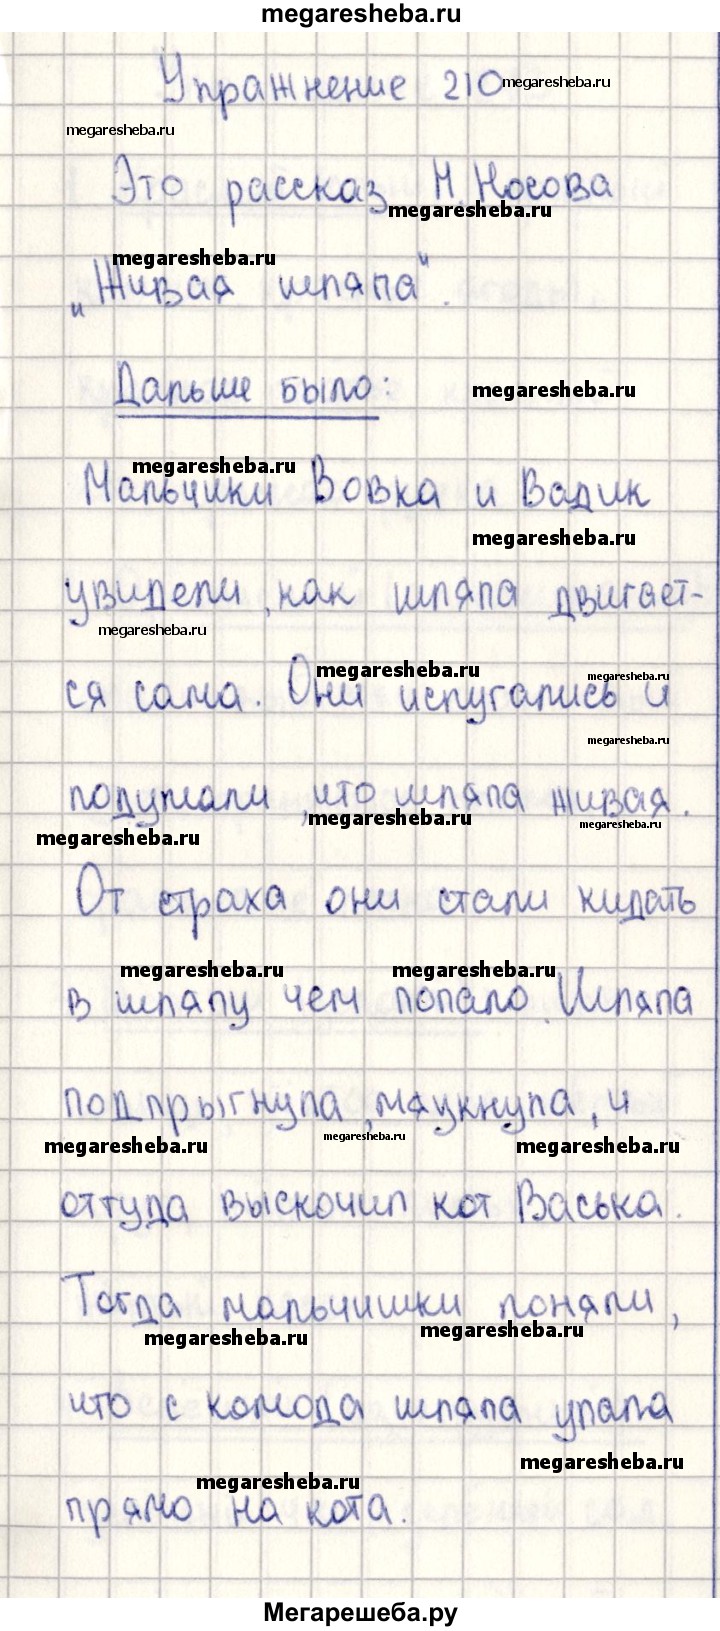 megaresheba.ru
Упражнение 210
megaresheba.ru
megaresheba.ru
Это рассказ Н. Носова
megaresheba.ru
megaresheba.ru
„Живая шляпа“.
Дальше было:
megaresheba.ru
megaresheba.ru
Мальчики Вовка и Вадик
megaresheba.ru
увидели, как шляпа двигает-
megaresheba.ru
megaresheba.ru
megaresheba.ru
ся сама. Они испугались и
megaresheba.ru
подумали, что шляпа живая.
megaresheba.ru
megaresheba.ru
megaresheba.ru
От страха они стали кидать
megaresheba.ru
megaresheba.ru
в шляпу чем попало. Шляпа
подпрыгнула, мяукнула, и
megaresheba.ru
megaresheba.ru
megaresheba.ru
оттуда выскочил кот Васька.
Тогда мальчишки поняли,
megaresheba.ru
megaresheba.ru
что с комода шляпа упала
megaresheba.ru
megaresheba.ru
прямо на кота.
Мегарешеба.ру